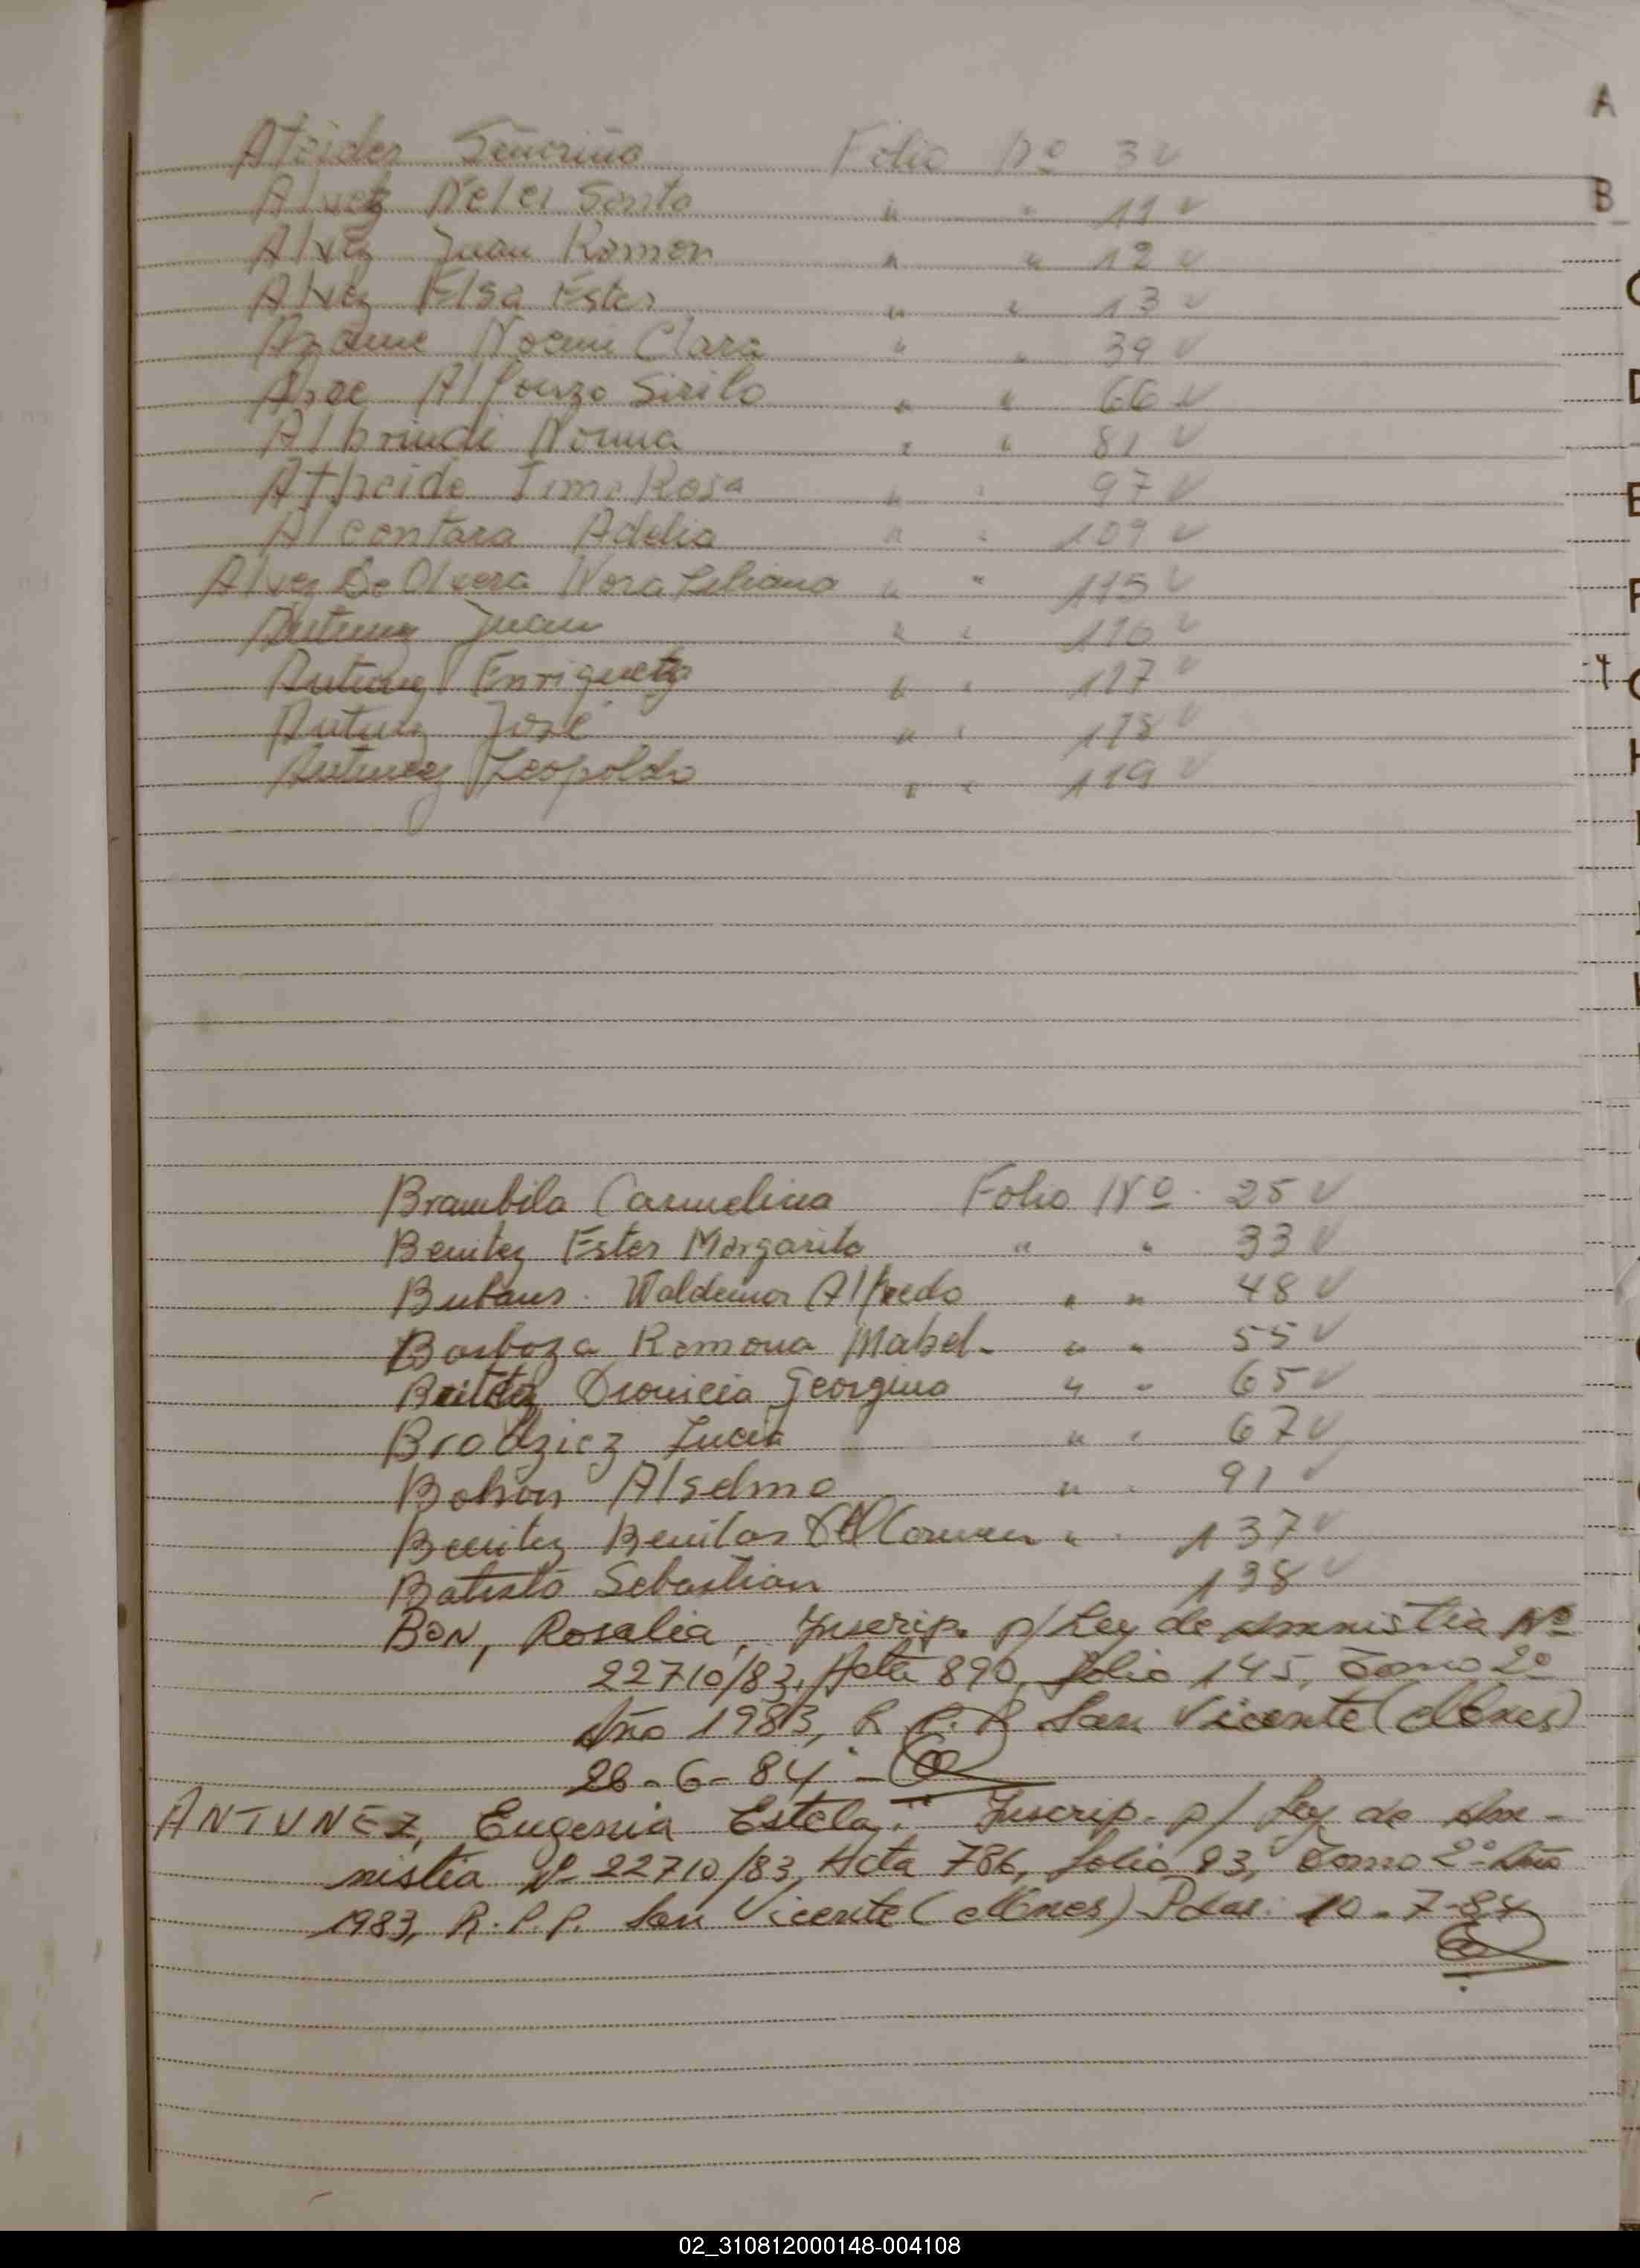 A
Folio Nº 3
B
Alvez Nelci Santa " " 11
Alvez Juan Ramon " " 12
Alvez Elsa Ester " " 13
Noemi Clara " " 39
Alfonzo Sirilo " " 66
Norma " " 81
Atheide Rosa " " 97
Alcantara Adelia " " 109
Alvez De Olvera Nora Liliana " " 115
Antunez Juan " " 116
Antunez Enriqueta " " 117
Antunez José " " 118
Antunez Leopoldo " " 119
Brambila Carmelina Folio Nº 25
Benitez Ester Margarita " " 33
Waldemar Alfredo " " 48
Barboza Ramona Mabel. " " 55
Benitez Dionicia Georgina " " 65
Brodzicz Lucia " " 67
Alselmo " " 91
Benitez Del Carmen " " 137
Batista Sebastian 138
BON, Rosalia, Inscrip. p/ Ley de Amnistia Nº
22710/83, Acta 890, folio 145, Tomo 2º
Año 1983, R.P.P. San Vicente (Mnes)
26-6-84.-
ANTUNEZ, Eugenia Estela.- Inscrip. p/ Ley de Am-
nistia Nº 22710/83, Acta 786, folio 93, Tomo 2º Año
1983, R.P.P. San Vicente (Mnes) Pdas. 10-7-84
02_310812000148-004108